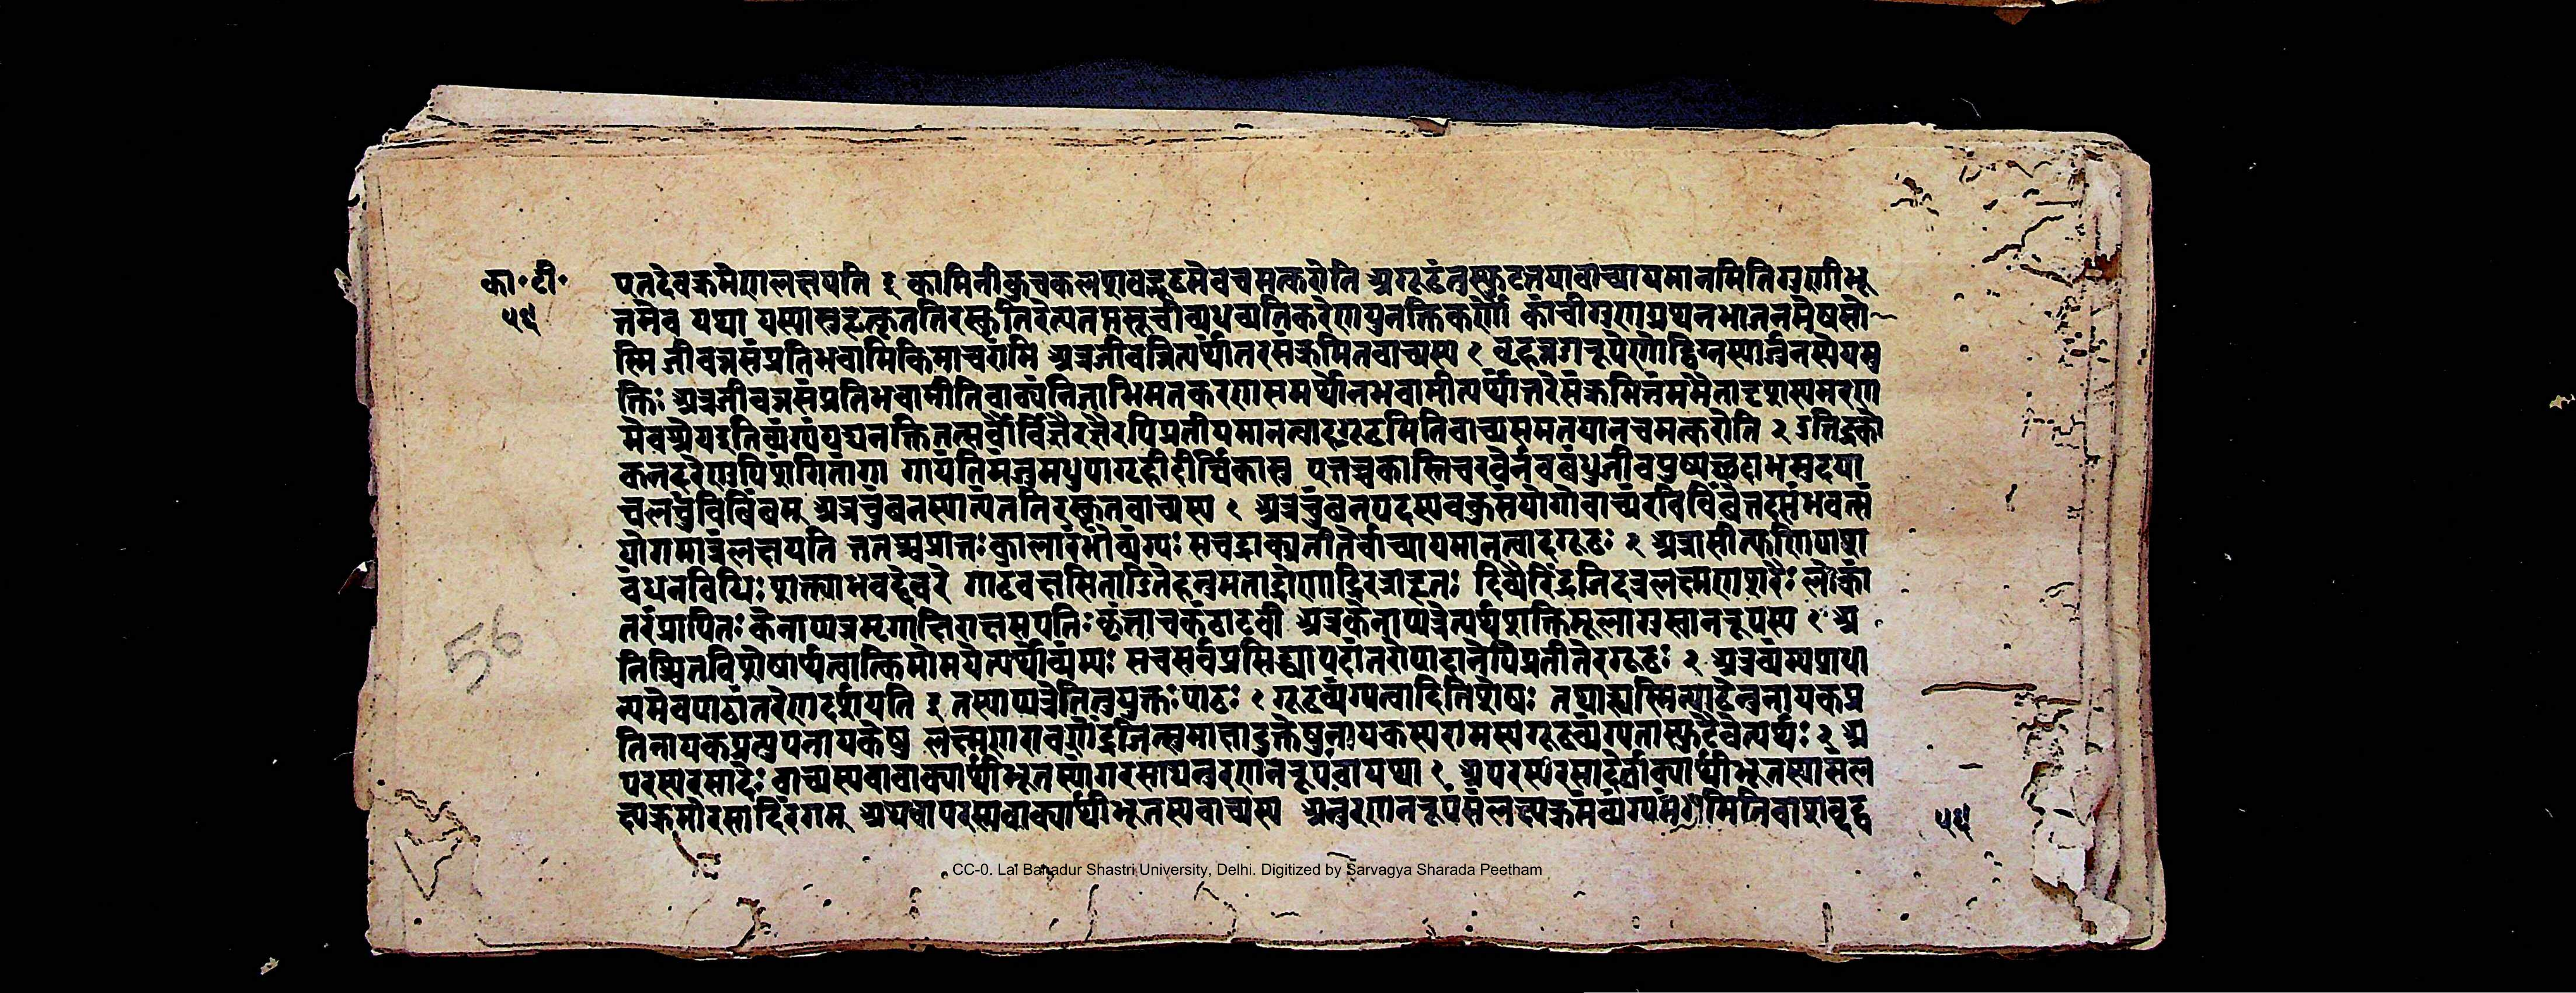 का॰टी॰
५६
पतदेवक्रमेणलक्षयति ३ कामिनीकुचकलशवद्गूढमेवचमत्करोति अगूढंतुस्फुटतयावाच्यायमानमितिगुणीभू
तमेव यथा यस्यासुहृत्कृततिरस्कृतिरेत्यतप्तसूचीव्यधव्यतिकरेणयुनक्तिकर्णौ कांचीगुणग्रथनभाजनमेषसो
स्मि जीवन्नसंप्रतिभवामिकिमाचरामि अत्रजीवन्नित्यर्थांतरसंक्रमितवाच्यस्य १ बृहन्नरूपेणोद्विग्नस्यार्जुनस्येयमु
क्तिः अत्रजीवन्नसंप्रतिभवामीतिवाक्यंतिनाभिमतकरणसमर्थोनभवामीत्यर्थांतरेसंक्रमितंममैतादृशस्यमरण
मेवश्रेयइतिव्यंग्यंपद्यनक्तितत्सर्वैर्विज्ञैरज्ञैरपिप्रतीयमानत्वादगूढमितिवाच्यसमतयानचमत्करोति २ उन्निद्रको
कनदरेणुपिशंगितांगा गायंतिमंजुमधुपागृहदीर्घिकासु एतच्चकास्तिचरवेर्नवबंधुजीवपुष्पच्छदाभमुदया
चलचुंबिबिंबम् अत्रचुंबनस्यात्यंततिरस्कृतवाच्यस्य १ अत्रचुंबनपदस्यवक्त्रसंयोगोवाच्यंरविबिंबेतदसंभवत्सं
योगमात्रंलक्षयति ततश्चप्रातःकालारंभोव्यंग्यः सचद्राक्प्रतीतेर्वाच्यायमानत्वादगूढः २ अत्रासीत्फणिपाश
बंधनविधिःशक्त्याभवद्देवरे गाढंवक्षसिताडितेहनुमताद्रोणाद्रिरत्राहृतः दिव्यैरिंद्रजिदत्रलक्ष्मणशरैःलोकां
तरंप्रापितः केनाप्यत्रमृगाक्षिराक्षसपतेःकृत्ताचकंठाटवी अत्रकेनाप्यत्रेत्यर्थशक्तिमूलानुस्वानरूपस्य १ अ
निश्चितविशेषार्थत्वात्किमोमयेत्यर्थोव्यंग्यः सचसर्वप्रसिद्ध्यापदांतरोपादानेपिप्रतीतेरगूढः २ अत्रव्यंग्यप्राधा
न्यमेवपाठांतरेणदर्शयति ३ तस्याप्यत्रेतितुयुक्तःपाठः १ गूढव्यंग्यत्वादितिशेषः तथाह्यस्मिन्पाठेतुनायकप्र
तिनायकप्रत्युपनायकेषु लक्ष्मणरावणेंद्रजित्सुमात्तादुक्तेषुनायकस्यरामस्यगूढव्यंग्यतास्फुटैवेत्यर्थः २ अ
परस्यरसादेः वाच्यस्यवावाक्यार्थीभूतस्यांगंरसाद्यनुरणनरूपंवायथा १ अपरस्यरसादेर्वाक्यार्थीभूतस्यासंल
क्ष्यक्रमोरसादिरंगम् अथवापरस्यवाक्यार्थीभूतस्यवाच्यस्य अनुरणनरूपंसंलक्ष्यक्रमंव्यंग्यमंगमितिवाशबृद्द
५६
56
CC-0. Lal Bahadur Shastri University, Delhi. Digitized by Sarvagya Sharada Peetham